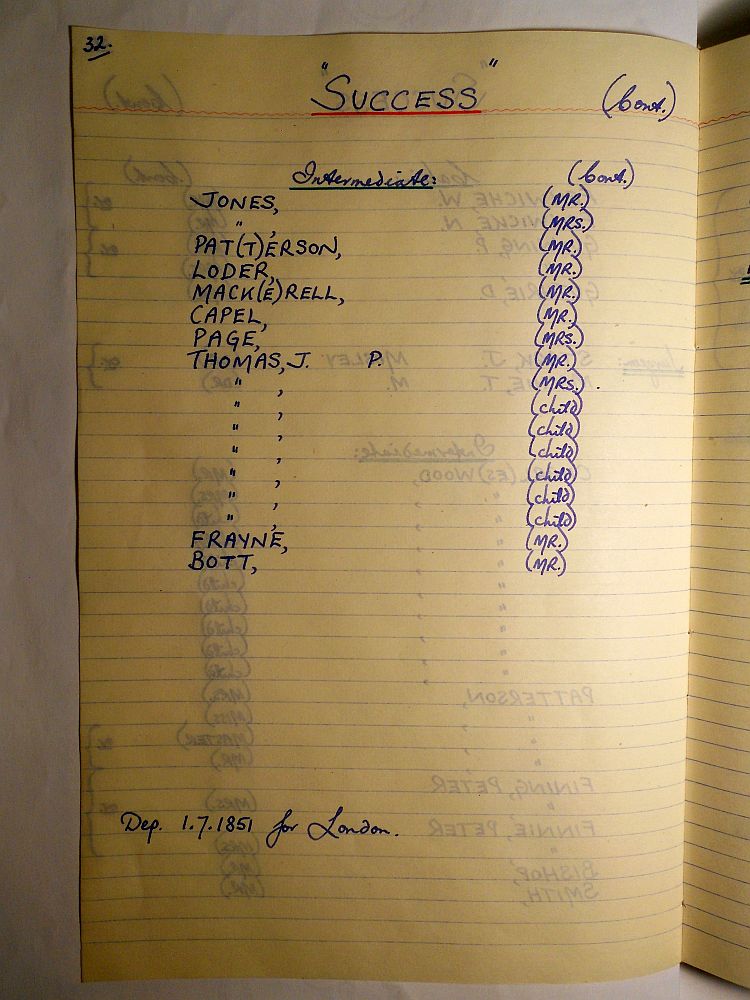 32.
"SUCCESS" (Cont.)
Intermediate: (Cont.)
JONES, (MR.)
" , (MRS.)
PAT(T)ERSON, (MR.)
LODER, (MR.)
MACK(E)RELL, (MR.)
CAPEL, (MR.)
PAGE, (MRS.)
THOMAS, J. P. (MR.)
" , (MRS.)
" , (child)
" , (child)
" , (child)
" , (child)
" , (child)
" , (child)
FRAYNE, (MR.)
BOTT, (MR.)
Dep. 1.7.1851 for London.